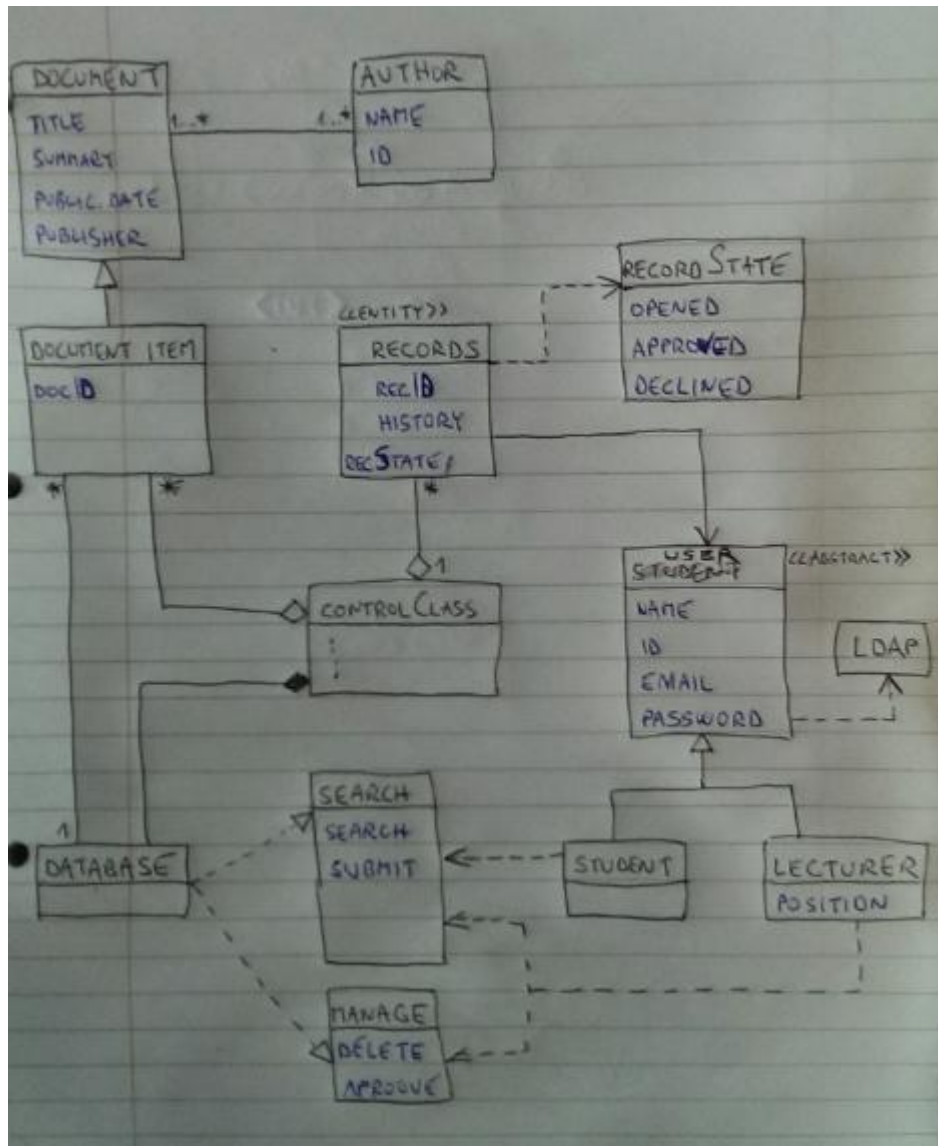 DOCUMENT
TITLE
SUMMARY
PUBLIC. DATE
PUBLISHER
1..*
1..*
AUTHOR
NAME
ID
RECORD STATE
OPENED
APPROVED
DECLINED
DOCUMENT ITEM
DOC ID
*
*
<<ENTITY>>
RECORDS
REC ID
HISTORY
REC STATE
*
1
CONTROL CLASS
USER
STUDENT
<<ABSTRACT>>
NAME
ID
EMAIL
PASSWORD
LDAP
1
DATABASE
SEARCH
SEARCH
SUBMIT
STUDENT
LECTURER
POSITION
MANAGE
DELETE
APROOVE